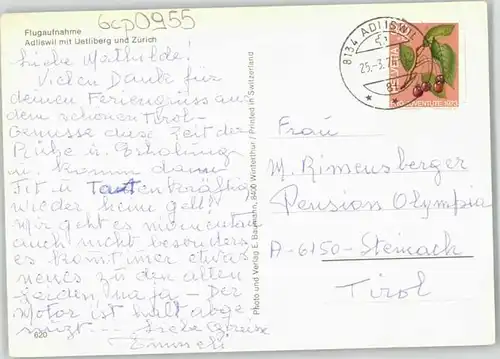 6cp0955
Flugaufnahme
Adliswil mit Uetliberg und Zürich
Liebe Mathilde!
Vielen Dank für
deinen Feriengruss aus
dem schönen Tirol-
Geniesse diese Zeit der
Ruhe u. Erholung
u. komm dann
Fit u Tatenkräftig
wieder heim gell!
Mir geht es momentan
auch nicht besonders
es kommt imer etwas
neues zu den alten
na ja - Der
Motor ist halt abge
nützt... Liebe Grüsse
Emmeli
620
Photo und Verlag E. Baumann, 8400 Winterthur / Printed in Switzerland
8134 ADLISWIL
25.-3.74
PRO JUVENTUTE 1973
Frau
M. Rimensberger
Pension Olympia
A-6150-Steinach
Tirol